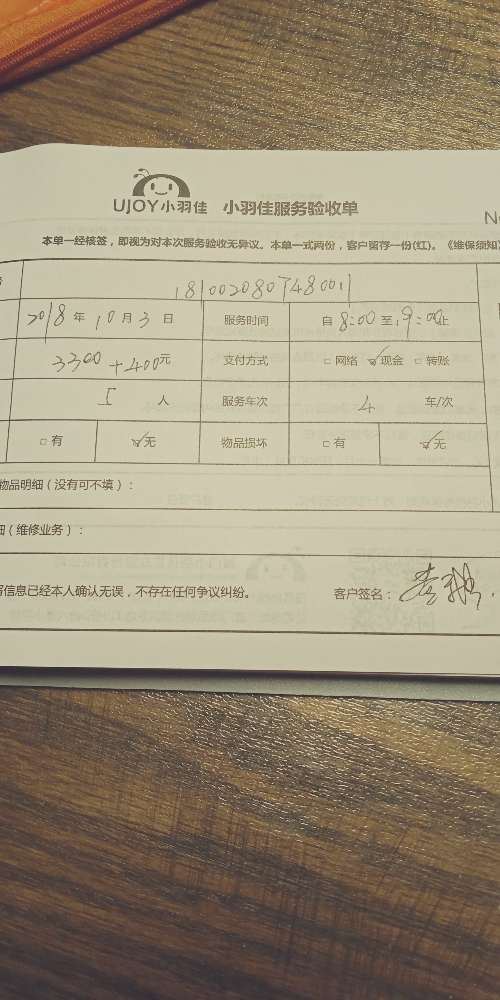 UJOY小羽佳 小羽佳服务验收单
本单一经核签，即视为对本次服务验收无异议。本单一式两份，客户留存一份(红)。《维保须知》
2018 年 10 月 3 日 服务时间 自 8:00 至 19:00 止
3300+400元 支付方式 □ 网络 ☑ 现金 □ 转账
5 人 服务车次 4 车/次
□ 有 ☑ 无 物品损坏 □ 有 ☑ 无
物品明细（没有可不填）：
（维修业务）：
信息已经本人确认无误，不存在任何争议纠纷。 客户签名：